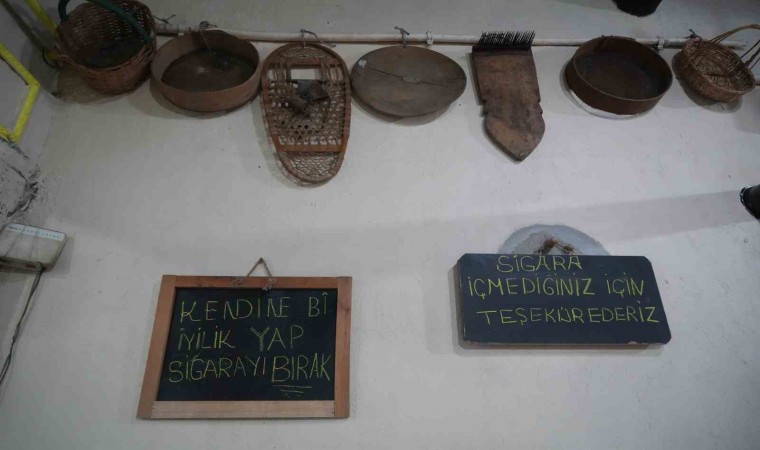 KENDINE BÎ
İYİLİK YAP
SİĞARAYI BIRAK
SİGARA
İÇMEDİĞİNİZ İÇİN
TEŞEKÜR EDERİZ